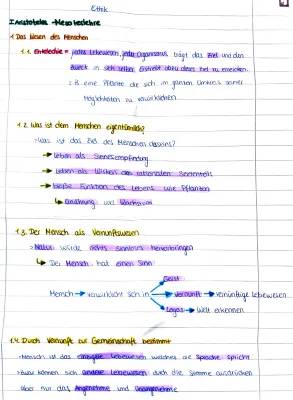 Ethik
I Aristoteles - Mesoteslehre
1 Das Wesen des Menschen
1.1. Entelechie = jedes Lebewesen, jeder Organismus trägt das Ziel und den
Zweck in sich selber. Er strebt dieses Ziel zu erreichen.
z.B. eine Pflanze die sich im ganzen Umkreis seiner
Möglichkeiten zu verwirklichen
1.2. Was ist dem Menschen eigentümlich?
Was ist das Ziel des Menschen daseins?
→ Leben als Sinnesempfindung
→ Leben als Wirken des rationalen Seelenteils
→ bloße Funktion des Lebens wie Pflanzen
↳ Ernährung und Wachstum
1.3. Der Mensch als Vernunftwesen
Natur würde nichts sinnloses hervorbringen
↳ Der Mensch hat einen Sinn
Geist
Mensch → verwirklicht sich in → Vernunft → vernünftige Lebewesen
Logos → Welt erkennen
1.4. Durch Vernunft zur Gemeinschaft bestimmt
- Mensch ist das einzige Lebewesen welches die Sprache spricht
können sich andere Lebewesen durch die Stimme ausdrücken
aber nur das Angenehme und Unangenehme